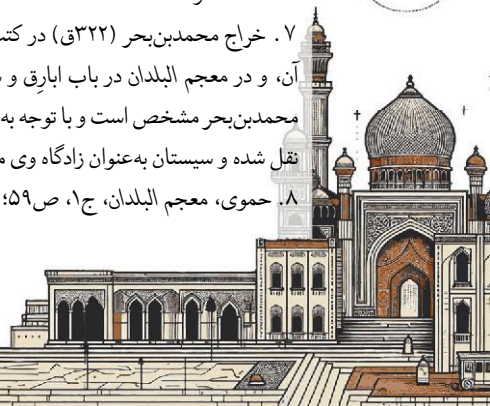 ۷. خراج محمدبن‌بحر (۳۲۲ق) در کتـ
آن، و در معجم البلدان در باب ابارِق و
محمدبن‌بحر مشخص است و با توجه به
نقل شده و سیستان به‌عنوان زادگاه وی
۸. حموی، معجم البلدان، ج۱، ص۵۹؛